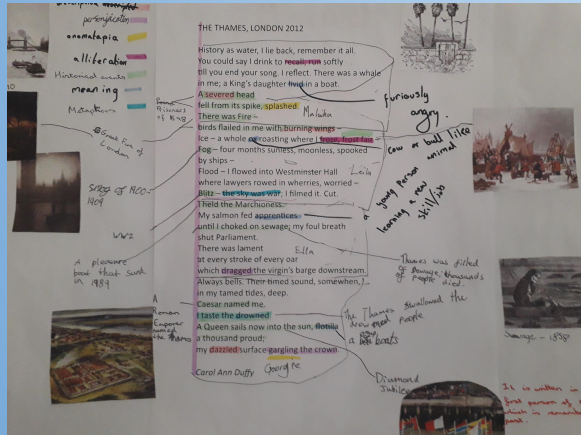 personification
onomatapia
alliteration
meaning
THE THAMES, LONDON 2012
History as water, I lie back, remember it all.
You could say I drink to recall, run softly
till you end your song. I reflect. There was a whale
in me; a King's daughter livid in a boat.
A severed head
fell from its spike, splashed
There was Fire –
birds flailed in me with burning wings –
Ice – a whole ox roasting where I froze, frost fair
Fog – four months sunless, moonless, spooked
by ships –
Flood – I flowed into Westminster Hall
where lawyers rowed in wherries, worried –
Blitz – the sky was war; I filmed it. Cut.
I held the Marchioness.
My salmon fed apprentices
until I choked on sewage; my foul breath
shut Parliament.
There was lament
at every stroke of every oar
which dragged the virgin's barge downstream.
Always bells. Their timed sound, somewhen,
in my tamed tides, deep.
Caesar named me.
I taste the drowned
A Queen sails now into the sun, flotilla
a thousand proud;
my dazzled surface gargling the crown.
Carol Ann Duffy
Malaika
Leila
Ella
Georgie
Great Fire of
London
1909
WW2
A pleasure
boat that sunk
in 1989
A
Roman
Emperor
named
the Thames
furiously
angry.
cow or bull like
animal
a
young person
learning a new
skill/job
Thames was filled
of sewage, thousands
of people died.
The Thames swallowed the
drowned people
boats
Diamond
Jubilee
Sewage - 1858
It is written in
first person of
which is remember
past.